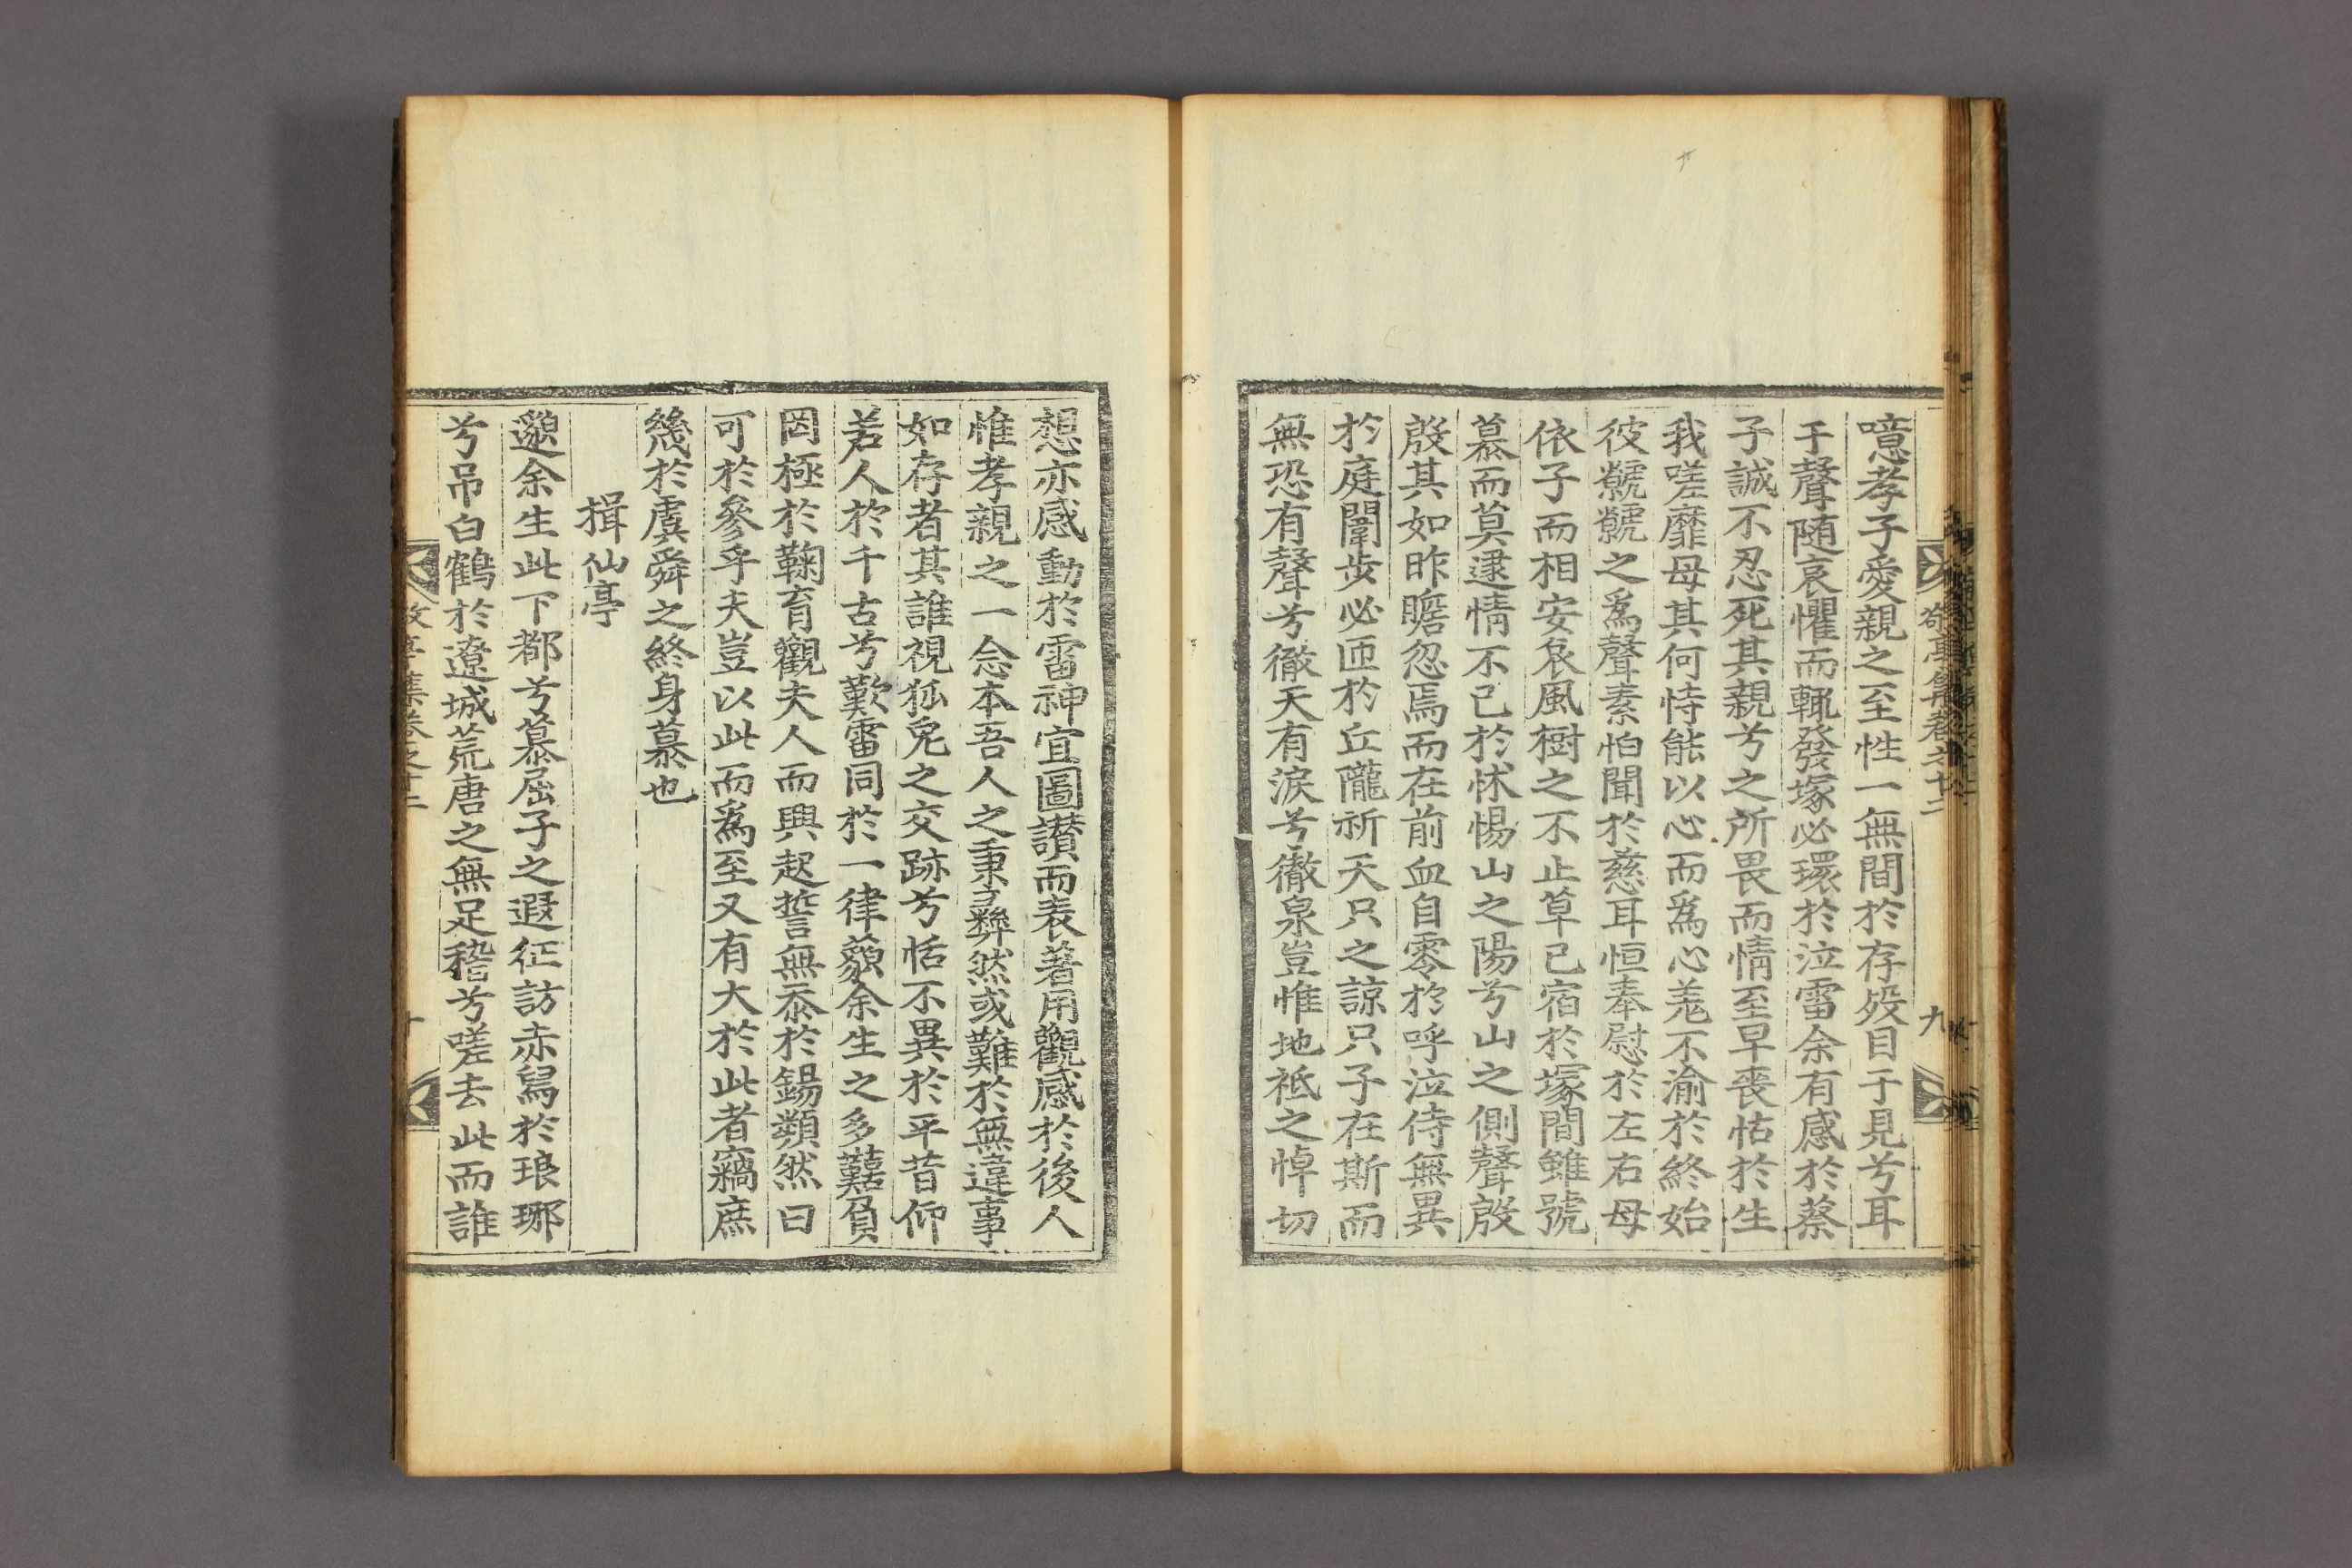 噫孝子愛親之至性一無間於存歿目于見兮耳
于聲随哀懼而輒發塚必環於泣雷余有感於蔡
子誠不忍死其親兮之所畏而情至早喪怙於生
我嗟靡母其何恃能以心而爲心羗不渝於終始
彼虩虩之爲聲素怕聞於慈耳恒奉慰於左右母
依子而相安哀風樹之不止草已宿於塚間雖號
慕而莫逮情不已於怵惕山之陽兮山之側聲殷
殷其如昨瞻忽焉而在前血自零於呼泣侍無異
於庭闈步必匝於丘隴祈天只之諒只子在斯而
無恐有聲兮徹天有淚兮徹泉豈惟地祗之悼切
九
想亦感動於雷神宜圖讃而表著用觀感於後人
惟孝親之一念本吾人之秉彝然或難於無違事
如存者其誰視狐兎之交跡兮恬不異於平昔仰
若人於千古兮歎雷同於一律藐余生之多囏負
罔極於鞠育觀夫人而興起誓無忝於錫類然曰
可於參乎夫豈以此而爲至又有大於此者竊庶
幾於虞舜之終身慕也
揖仙亭
邈余生此下都兮慕屈子之遐征訪赤舃於琅琊
兮吊白鶴於遼城荒唐之無足稽兮嗟去此而誰
敬亭集卷之十二
十